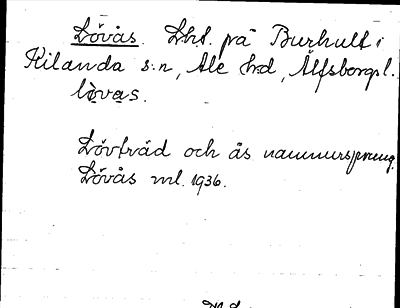 Lövås. Lht. på Burhult i
Kilanda s:n, Ale hd, Älfsborgs l.
lòvas.
Lövträd och ås namnursprung.
Lövås ml. 1936.